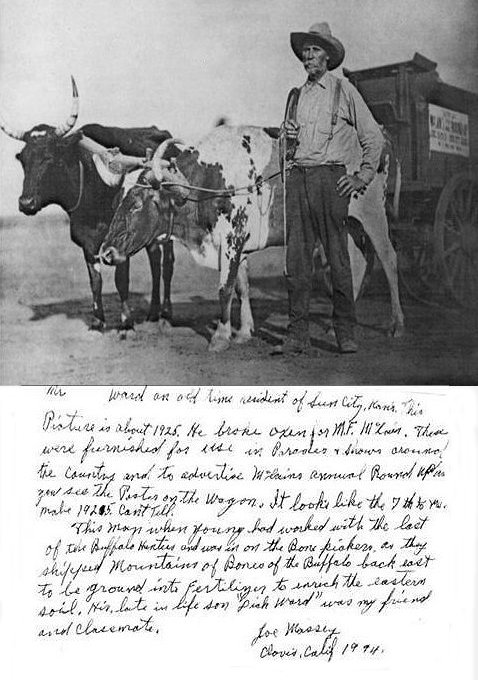 Mr Ward an old time resident of Sun City, Kans. This
Picture is about 1925. He broke oxen for M.F. McLain. These
were furnished for use in Parades & Shows around
the Country and to advertise McLains annual Round Up as
you see the Poster on the Wagon. It looks like the 7th
Make 1925. Cant tell.
This Man when Young had worked with the last
of the Buffalo Hunters and was in on the Bone pickers, as they
shipped Mountains of Bones of the Buffalo back east
to be ground into Fertilizer to enrich the eastern
soil. His late in life son "Dick Ward" was my friend
and Classmate.
Joe Massey
Clovis, Calif 1994.